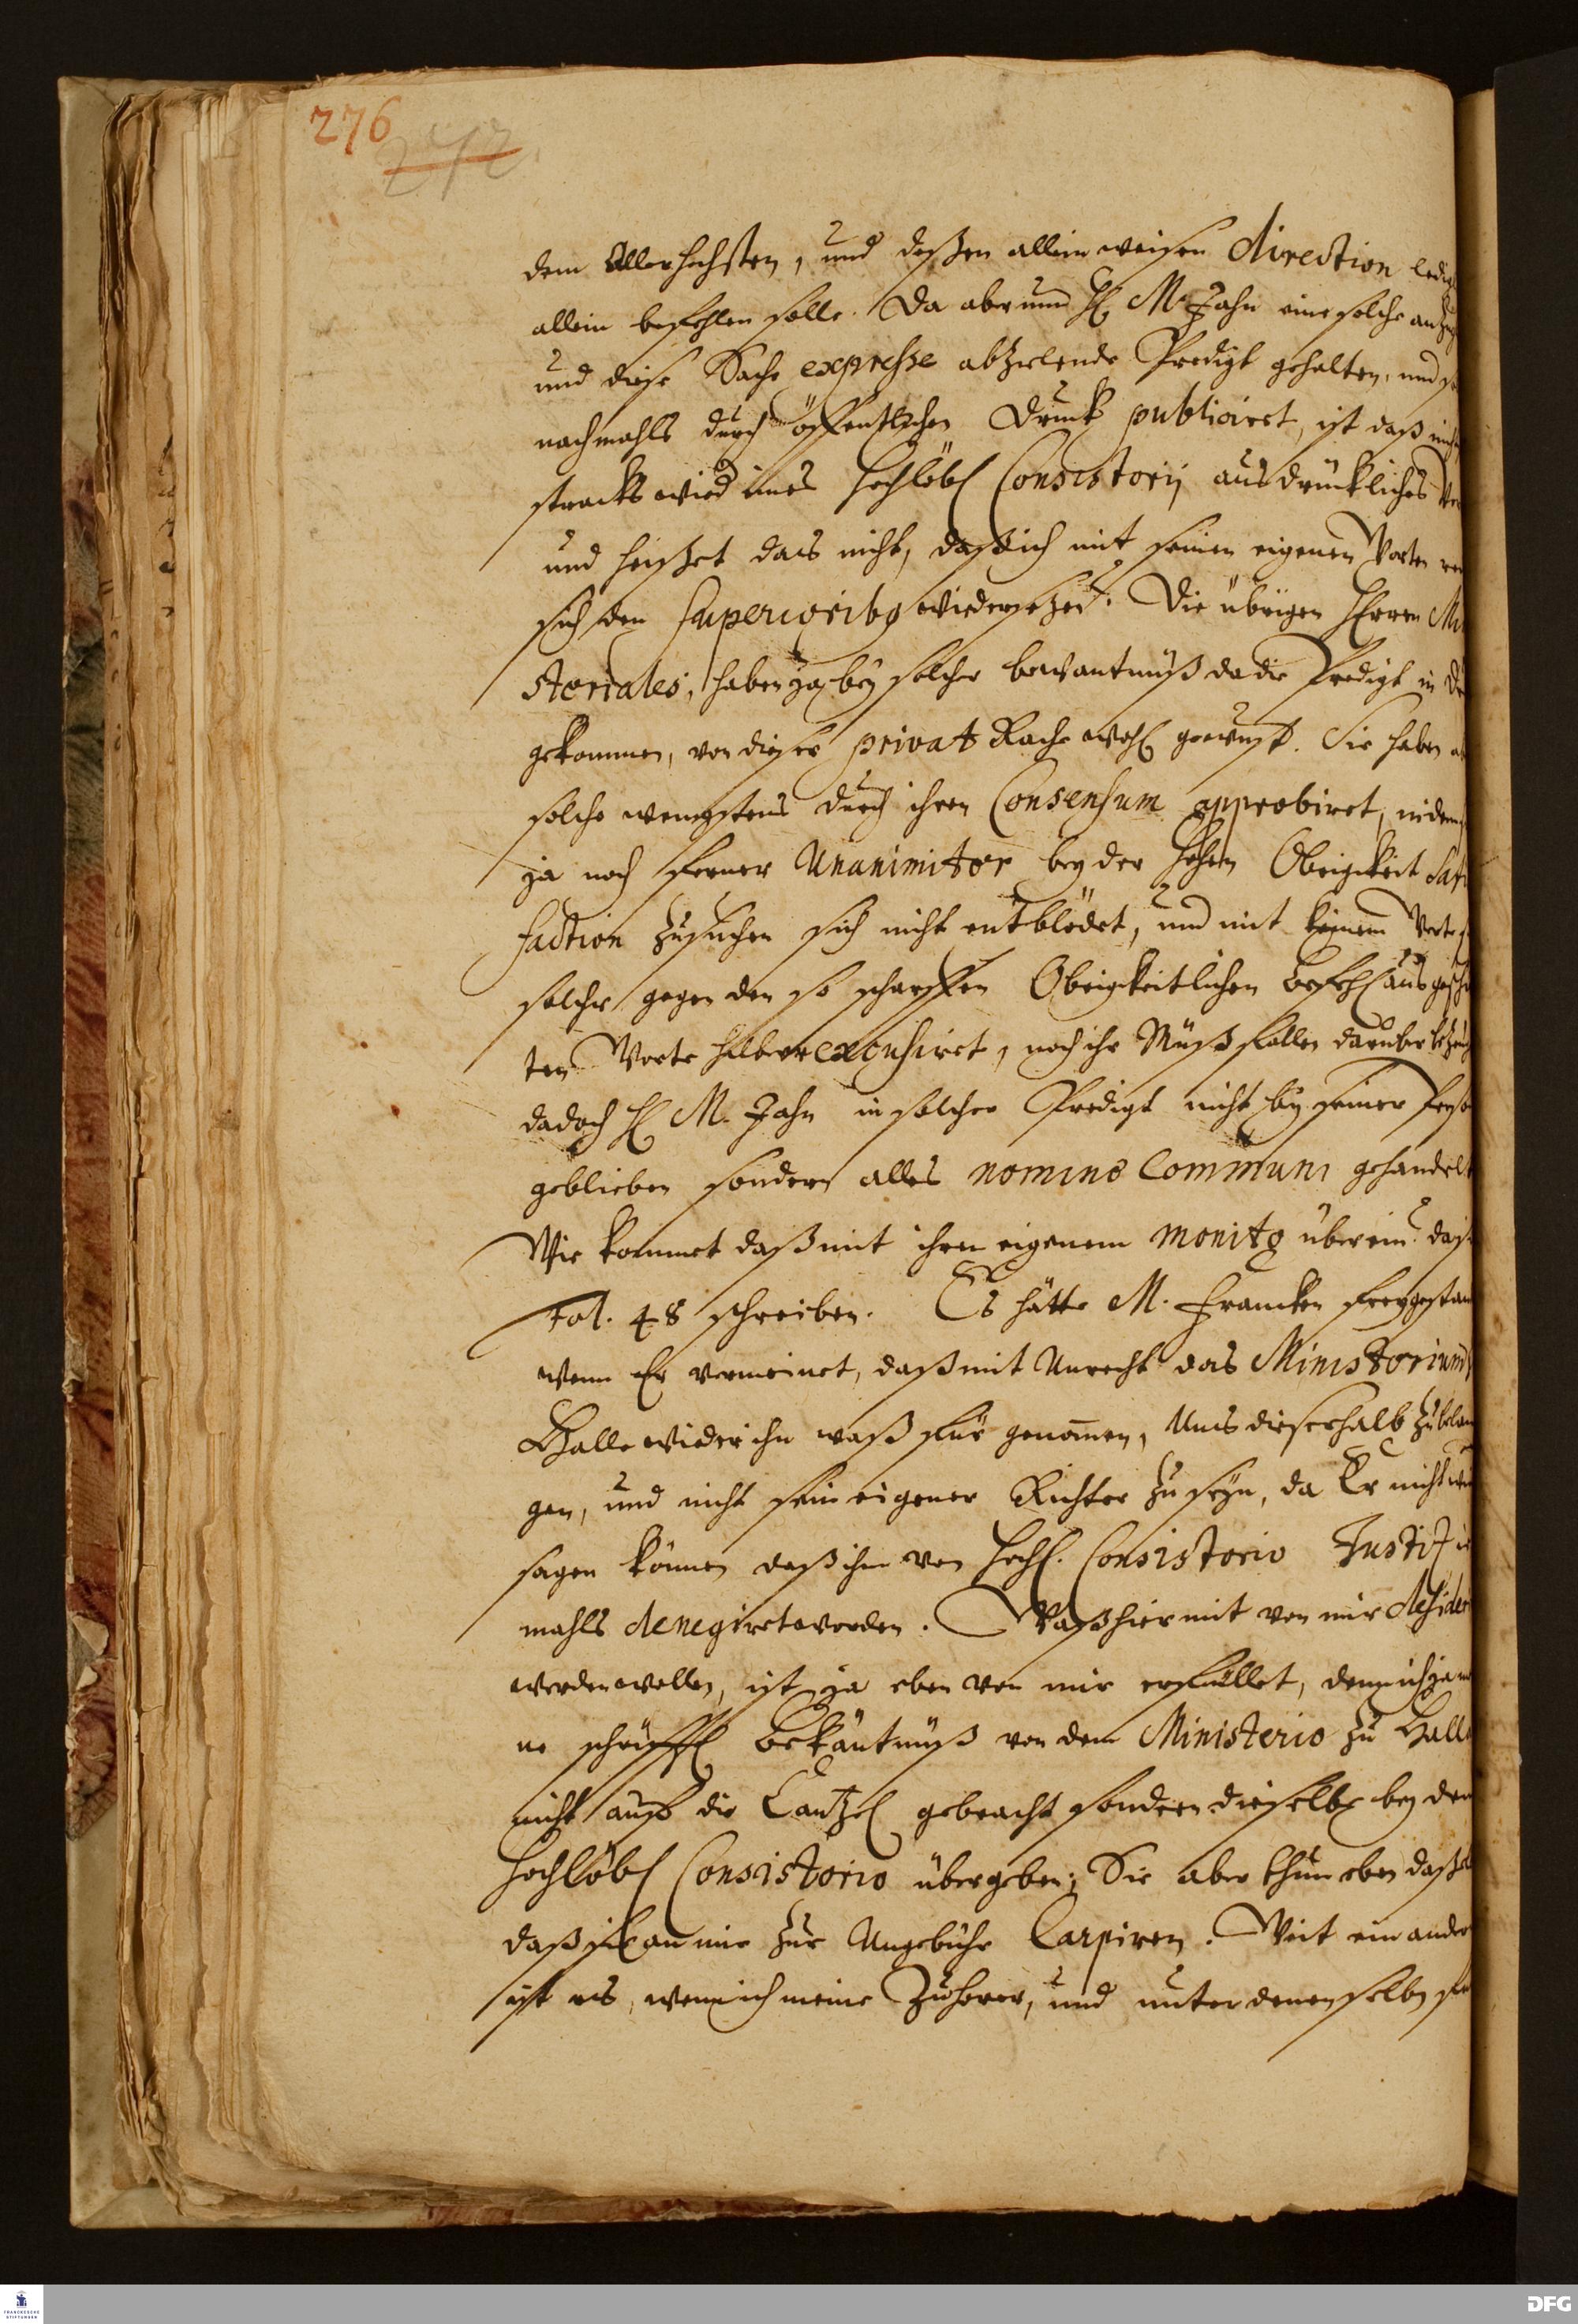 276
272
dem Allerhöchsten, und deßen allein weisen direction ledig
allein befehlen solle. Da aber nun H. M. Jahn eine solche anzüg
und diese Sache expresse abzielende Predigt gehalten, und
nachmahls durch öffentlichen Druck publiciret, ist daß nicht
stracks wied eines Hochlöbl Consistorij ausdrückliches Ver
und heißet das nicht, daß ich mit seinen eigenen Worten
sich den superioribus widersezet. Die übrigen Herren Mi
steriales, haben ja bey solcher bewantnüß da die Predigt in
gekommen, von dieser privat Rache wohl gewust. Sie haben
solche wenigstens durch ihren Consensum approbiret, indem
ja noch ferner Unanimiter bey der hohen Obrigkeit Satis
faction zusuchen sich nicht entblödet, und mit keinem Worte
solcher gegen den so scharffen Obrigkeitlichen befehl ausgesch
ten Worte halber excusiret, noch ihr Mißfallen darüber bezeug
da doch H. M. Jahn in solcher Predigt nicht bey seiner Perso
geblieben sondern alles nomine Communi gehandelt
Wie kommet daß mit ihren eigenem monito überein? daß
Fol. 48 schreiben. Es hätte M. Francken freygestan
wenn Er vermeinet, daß mit Unrecht das Ministerium
Halle wieder ihn waß für genom̅en, Uns dieserhalb zubelan
gen, und nicht sein eigener Richter zu seyn, da Er nicht
sagen können daß ihm von Hochl. Consistorio Justitie
mahls denegiret worden. Waß hiermit von mir desider
werden wollen, ist ja eben von mir erfüllet, denn ich ja
ne schrifftl bekäntnüß von dem Ministerio zu Halle
nicht auff die Cantzel gebracht sondern dieselbe bey dem
Hochlöbl Consistorio übergeben; Sie aber thun eben daß
daß sie an mir zur Ungebühr Carpiren. Weit ein ander
ist es, wenn ich meine Zuhörer, und unter denenselben